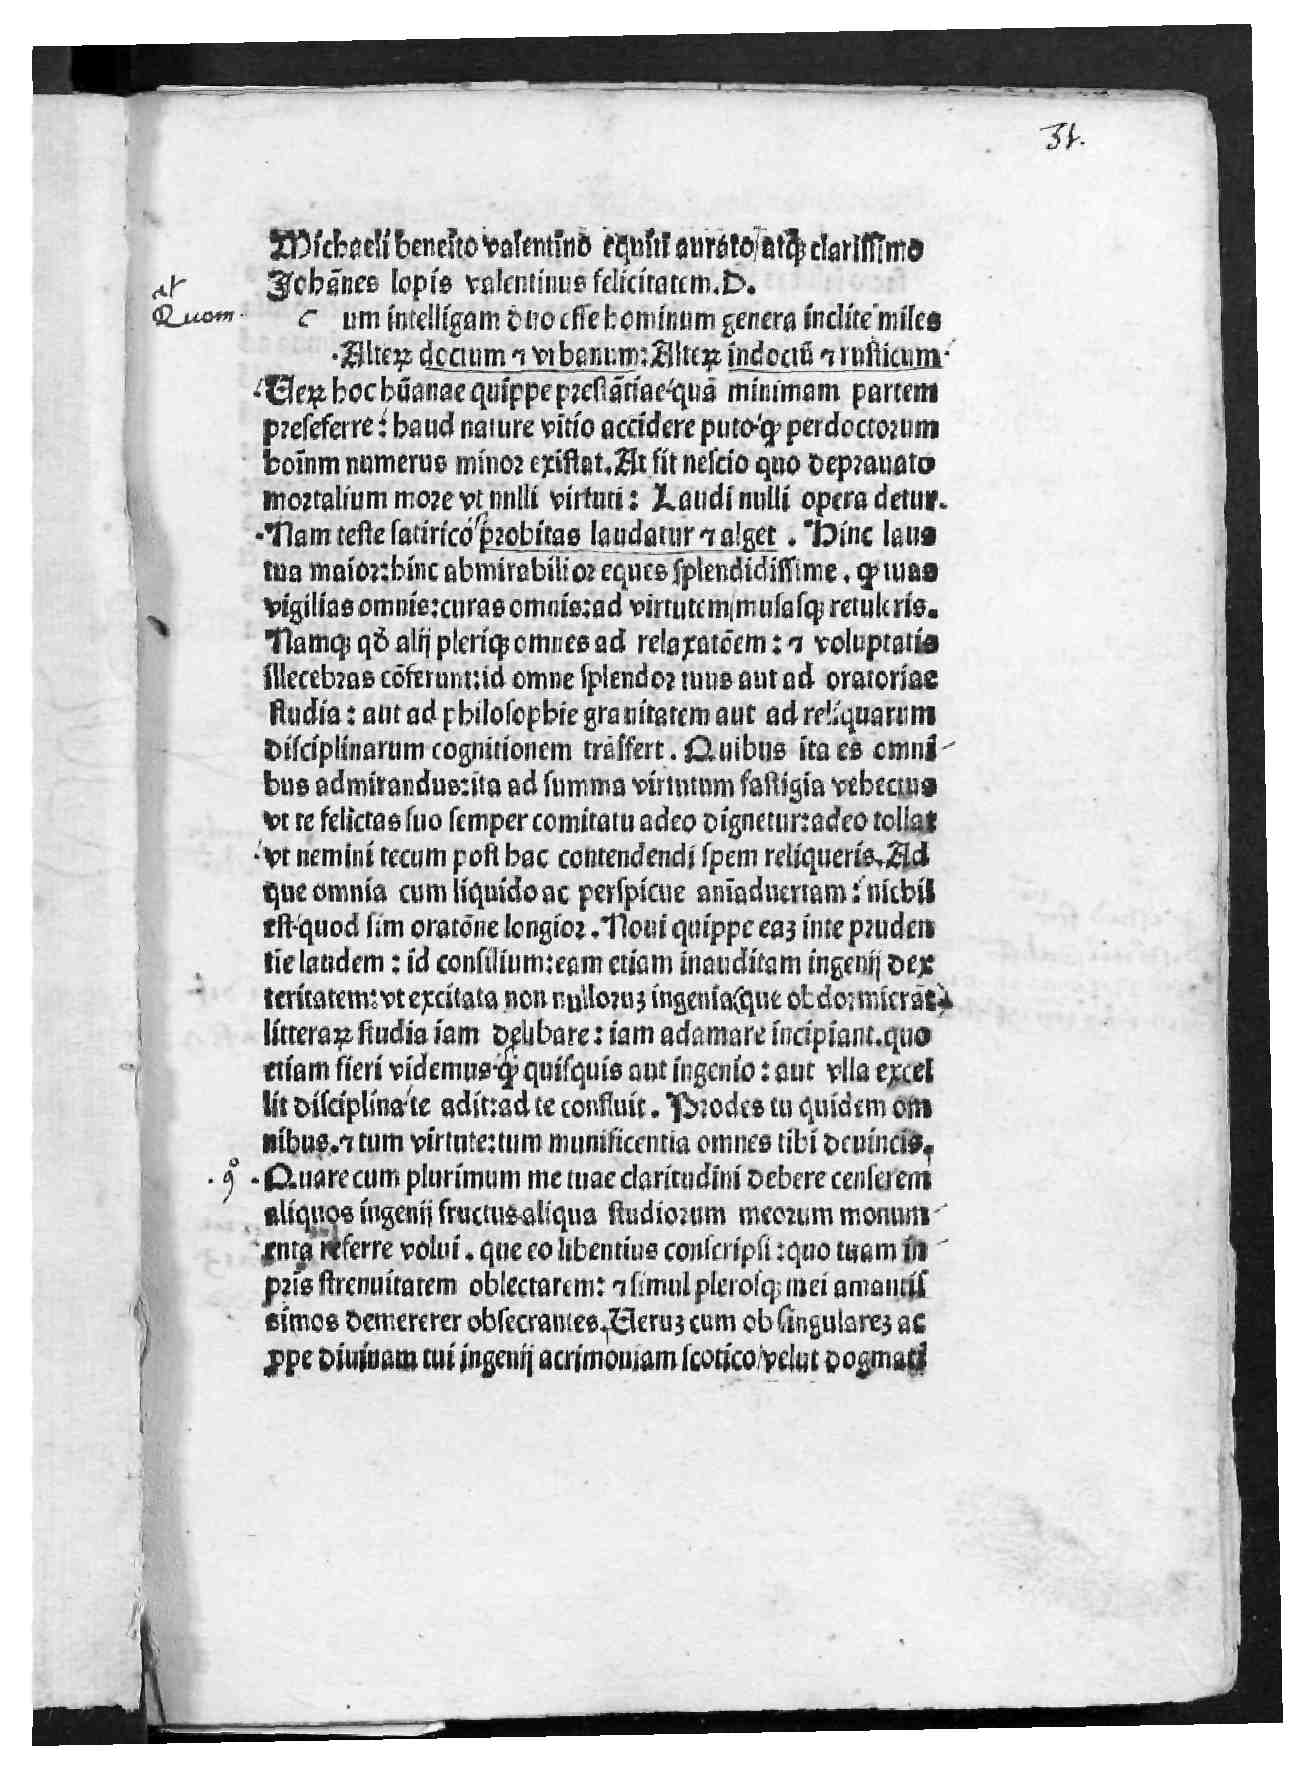 31.
Michaeli beneito valentino equiti aurato/atqꝫ clarissimo
Johānes lopis valentinus felicitatem.D.
at
Quom
c um intelligam duo esse hominum genera inclite miles
Alteꝝ doctum ⁊ vrbanum:Alteꝝ indoctū ⁊ rusticum
Ueꝝ hoc hūanae quippe prestātiae quā minimam partem
preseferre: haud nature vitio accidere puto ꝙ perdoctorum
hoīnm numerus minor existat.At sit nescio quo deprauato
mortalium more vt nulli virtuti: Laudi nulli opera detur.
Nam teste satirico probitas laudatur ⁊ alget . Hinc laus
tua maior:hinc abmirabilior eques splendidissime. ꝙ tuas
vigilias omnis:curas omnis:ad virtutem/musasqꝫ retuleris.
Namqꝫ qđ alij pleriqꝫ omnes ad relaxatōem: ⁊ voluptatis
illecebras cōferunt:id omne splendor tuus aut ad oratoriae
studia: aut ad philosophie grauitatem aut ad reliquarum
disciplinarum cognitionem trāssert. Quibus ita es omni
bus admirandus:ita ad summa virtutum fastigia vehectus
vt te felictas suo semper comitatu adeo dignetur:adeo tollat
vt nemini tecum post hac contendendi spem reliqueris.Ad
que omnia cum liquido ac perspicue anīaduertam: nichil
est quod sim oratōne longior. Noui quippe eaꝫ inte pruden
tie laudem: id consilium:eam etiam inauditam ingenij dex
teritatem:vt excitata non nulloruꝫ ingenia(que obdormierāt)
litteraꝝ studia iam delibare: iam adamare incipiant.quo
etiam fieri videmus ꝙ quisquis aut ingenio: aut vlla excel
lit disciplina te adit:ad te confluit. Prodes tu quidem om
nibus.⁊ tum virtute:tum munificentia omnes tibi deuincis.
Quare cum plurimum me tuae claritudini debere censerem
aliquos ingenij fructus aliqua studiorum meorum monum
enta referre volui. que eo libentius conscripsi:quo tuam in
pris strenuitatem oblectarem: ⁊ simul plerosqꝫ mei amantis
simos demererer obsecrantes.Ueruꝫ cum ob singulareꝫ ac
ꝓpe diuinam tui ingenij acrimoniam scotico/velut dogmati